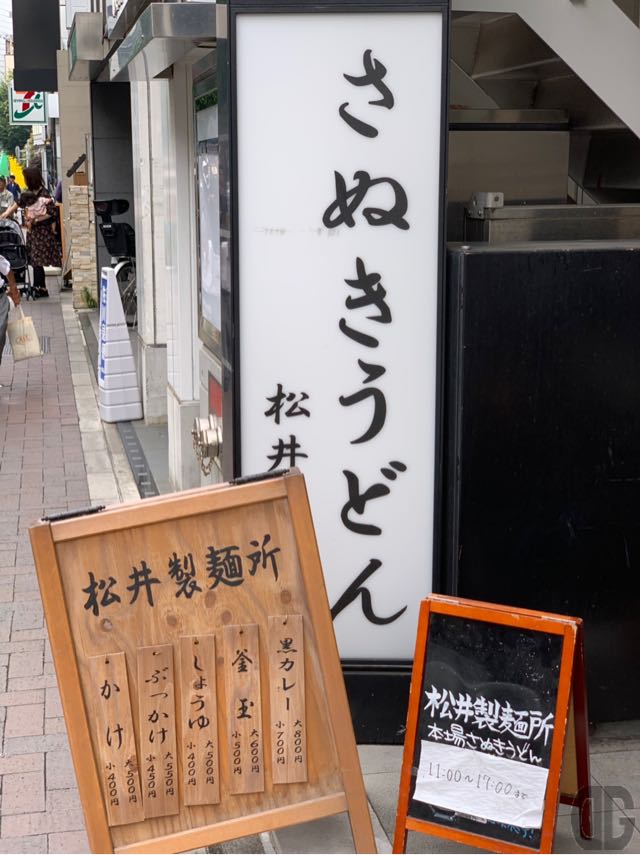 さぬきうどん
松井
松井製麺所
黒カレー
大800円
小700円
釜玉
大600円
小500円
しょうゆ
大500円
小400円
ぶっかけ
大550円
小450円
かけ
大500円
小400円
松井製麺所
本場さぬきうどん
11:00〜17:00まで